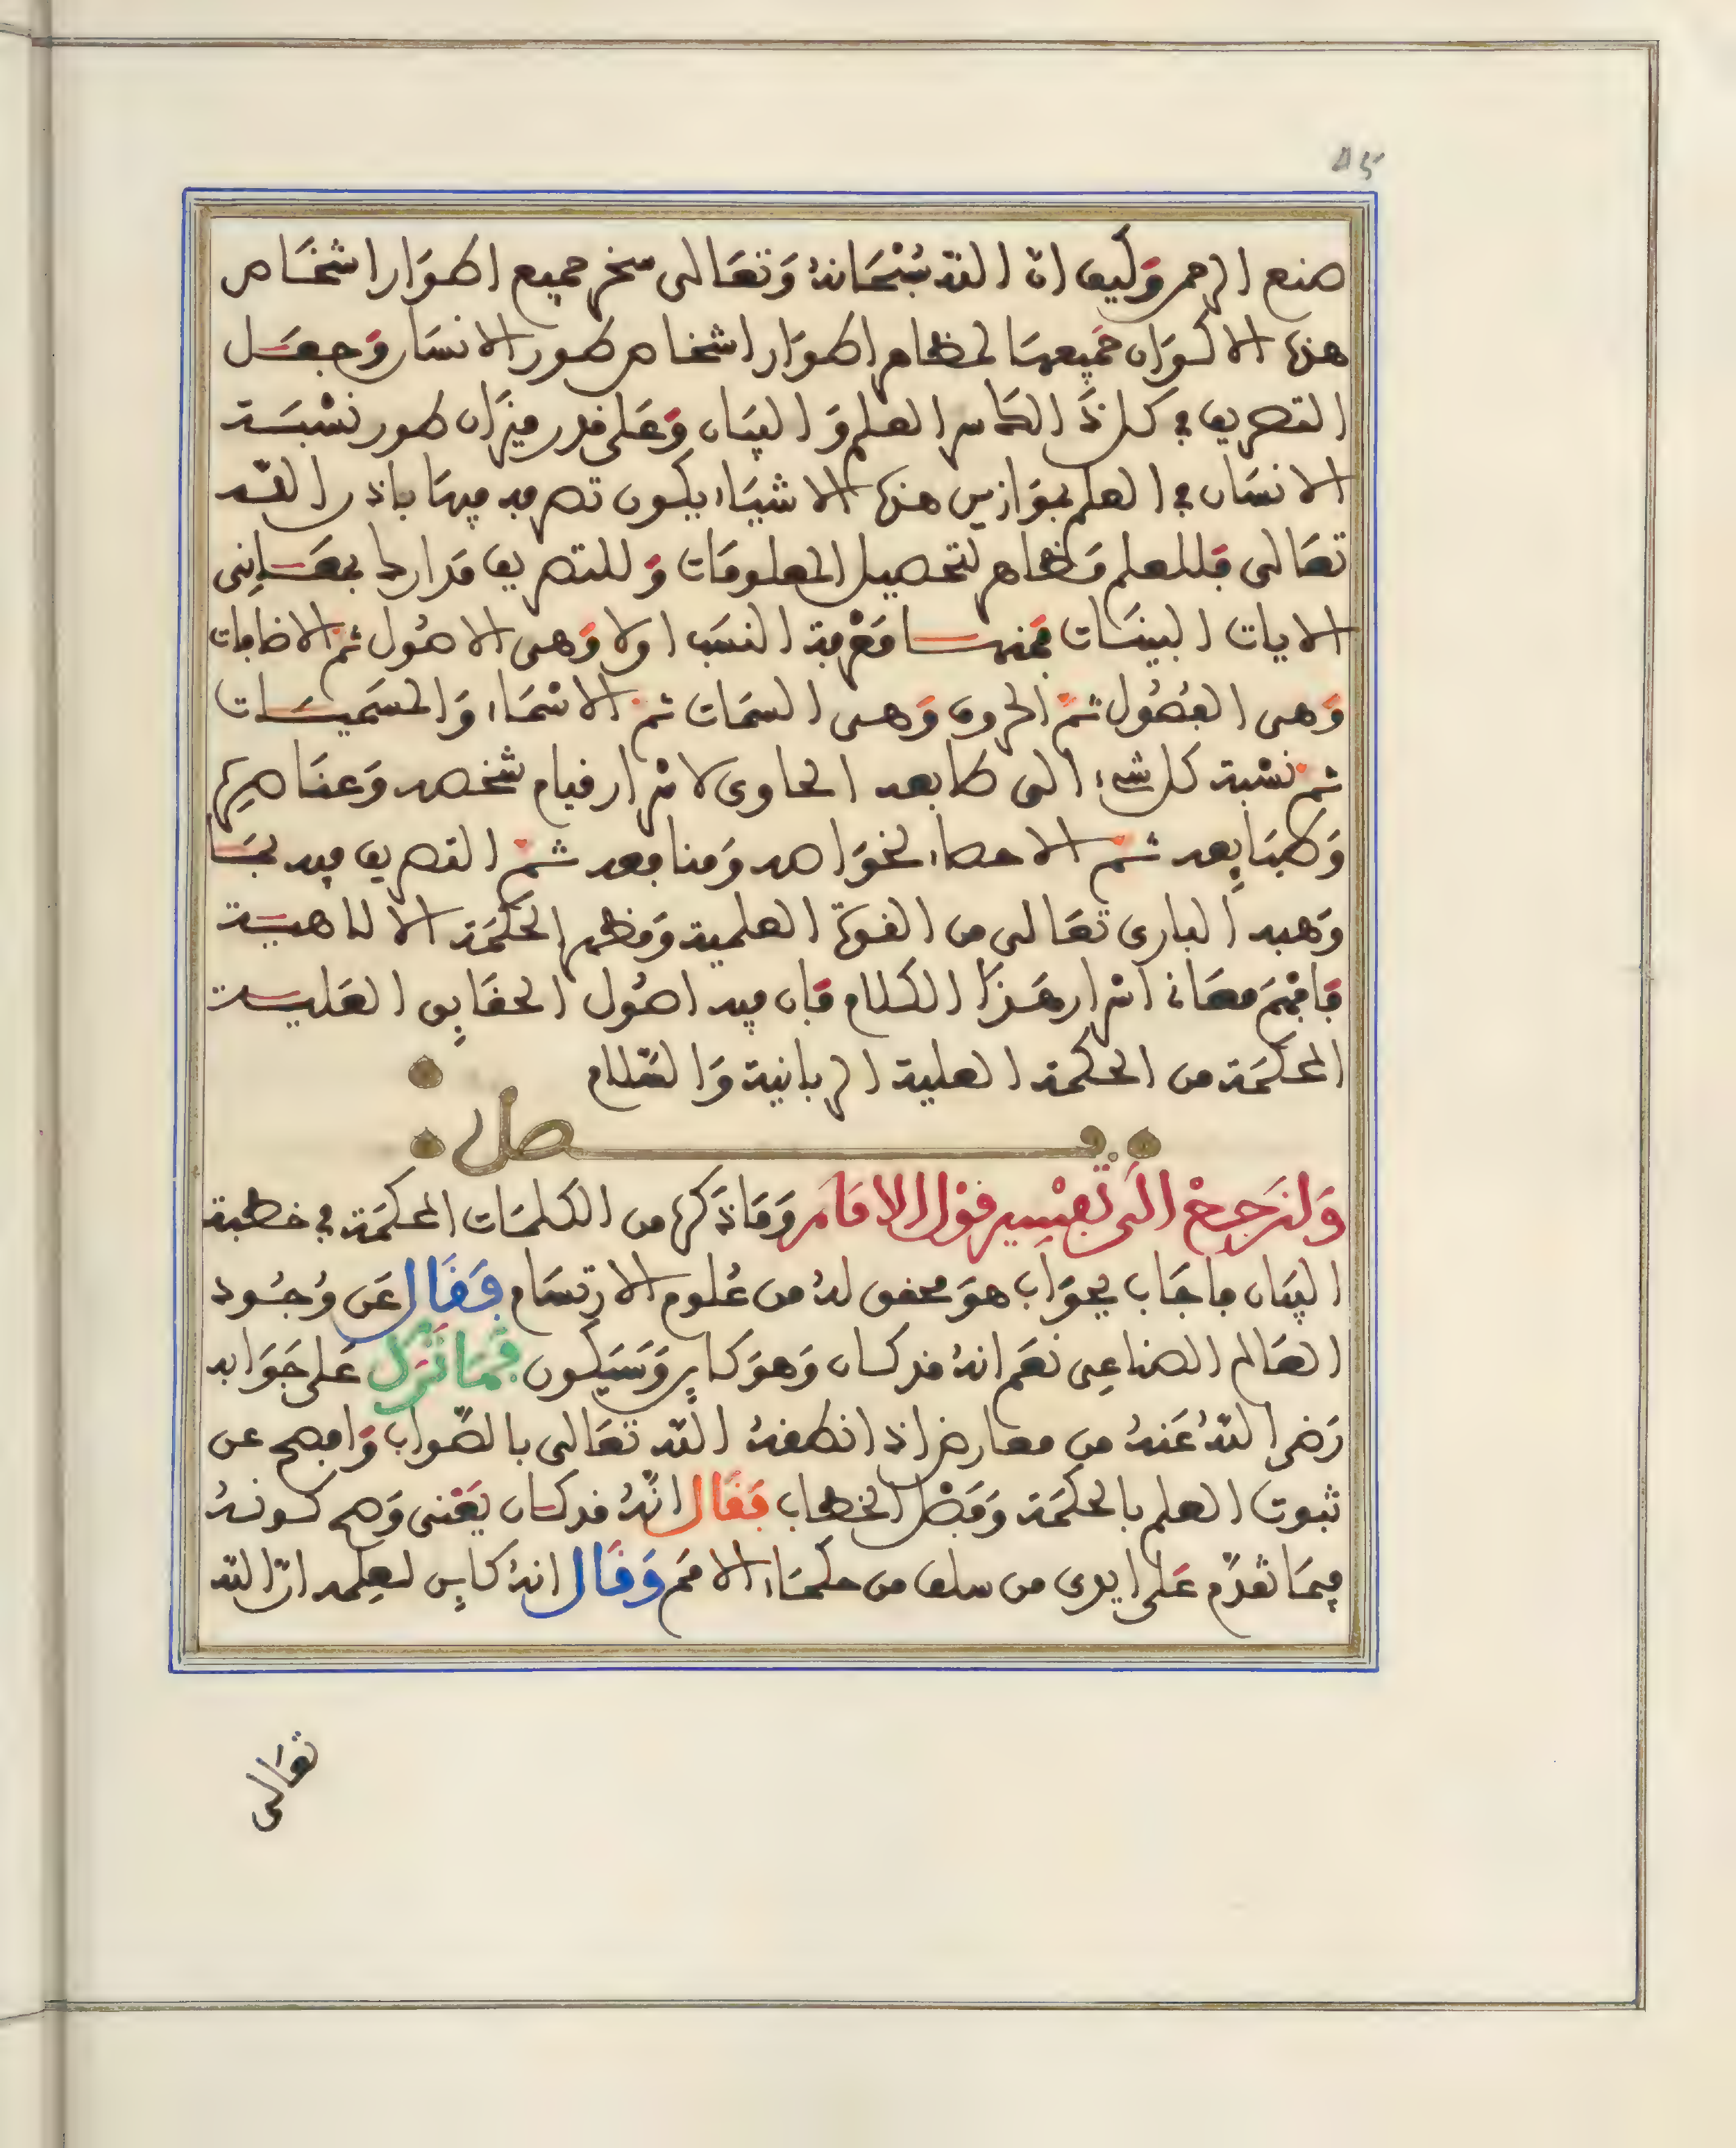 صنع الرحمن وكيف ان الله سُبْحَانهُ وَتعَالى سخر جميع اطوَار اشخَاص
هذه الاكوَان جَميعهَا لمظاهر اطوَار اشخاص طور الانسَان وَجعَل
التصريف في كل ذَ العلم وَالبيَان وَعَلى قدر ميزَان طور نسْبَة
الانسَان في العلم بموَازين هذه الاشيَاء يكون تصرفه فيهَا باذن الله
تعَالى فَللعلم مَظاهر لتحصيل المعلومَات وَللتصريف مَدارك بمعَانِى
الايات البينَات فمنهَا مَعْرفة النسَب اولا وَهى الاصُول ثم الاضافات
وَهى الفُصُول ثمَّ الحروف وَهى السمَات ثم الاسْمَاء وَالمسَميَات
ثم نسْبة كل شىء الى طبايعه الحاوى لاسْرار قيام شخصه وَعنَاصِره
وَطبَايِعه ثم الاحصاء لخوَاصه وَمنافعه ثمَّ التصريف فيه بمَا
وَهبه البارى تعَالى من القوة العلمية وَمظهر الحكمَة الالاهيَة
فَافهَم معَانى اسْرار هَذَا الكلام فَان فيه اصُول الحقَايِق العَليَة
المحكمَة من الحكمة العلية الربانية وَالسَّلام
فصل
وَلنَرجِعْ الَى تَفسِير قوْل الامَام وَمَا ذكره من الكلمَات المحكمَة في خطبة
البيَان فاجَاب بجوَاب هوَ محقق لهُ من عُلوم الارتسَام فَقَال عَن وُجُود
العَالم الصناعِى نعَم انهُ قد كَان وَهوَ كايِن وَسَيَكون فمَا نَزَل عَلى جَوَابه
رَضى اللهُ عَنهُ من معارض اذ انطقهُ اللّه تعَالى بالصَّوَاب وَافصح عن
ثبوت العلم بالحكمَة وَفَصْل الخطاب فَقَال انَّهُ قد كَان يَعْنى وَصح كونهُ
فيمَا تقدَّم عَلى ايدى من سلف من حكمَاء الامَم وَقَال انهُ كايِن لعِلمه انّ الله
تعَالى